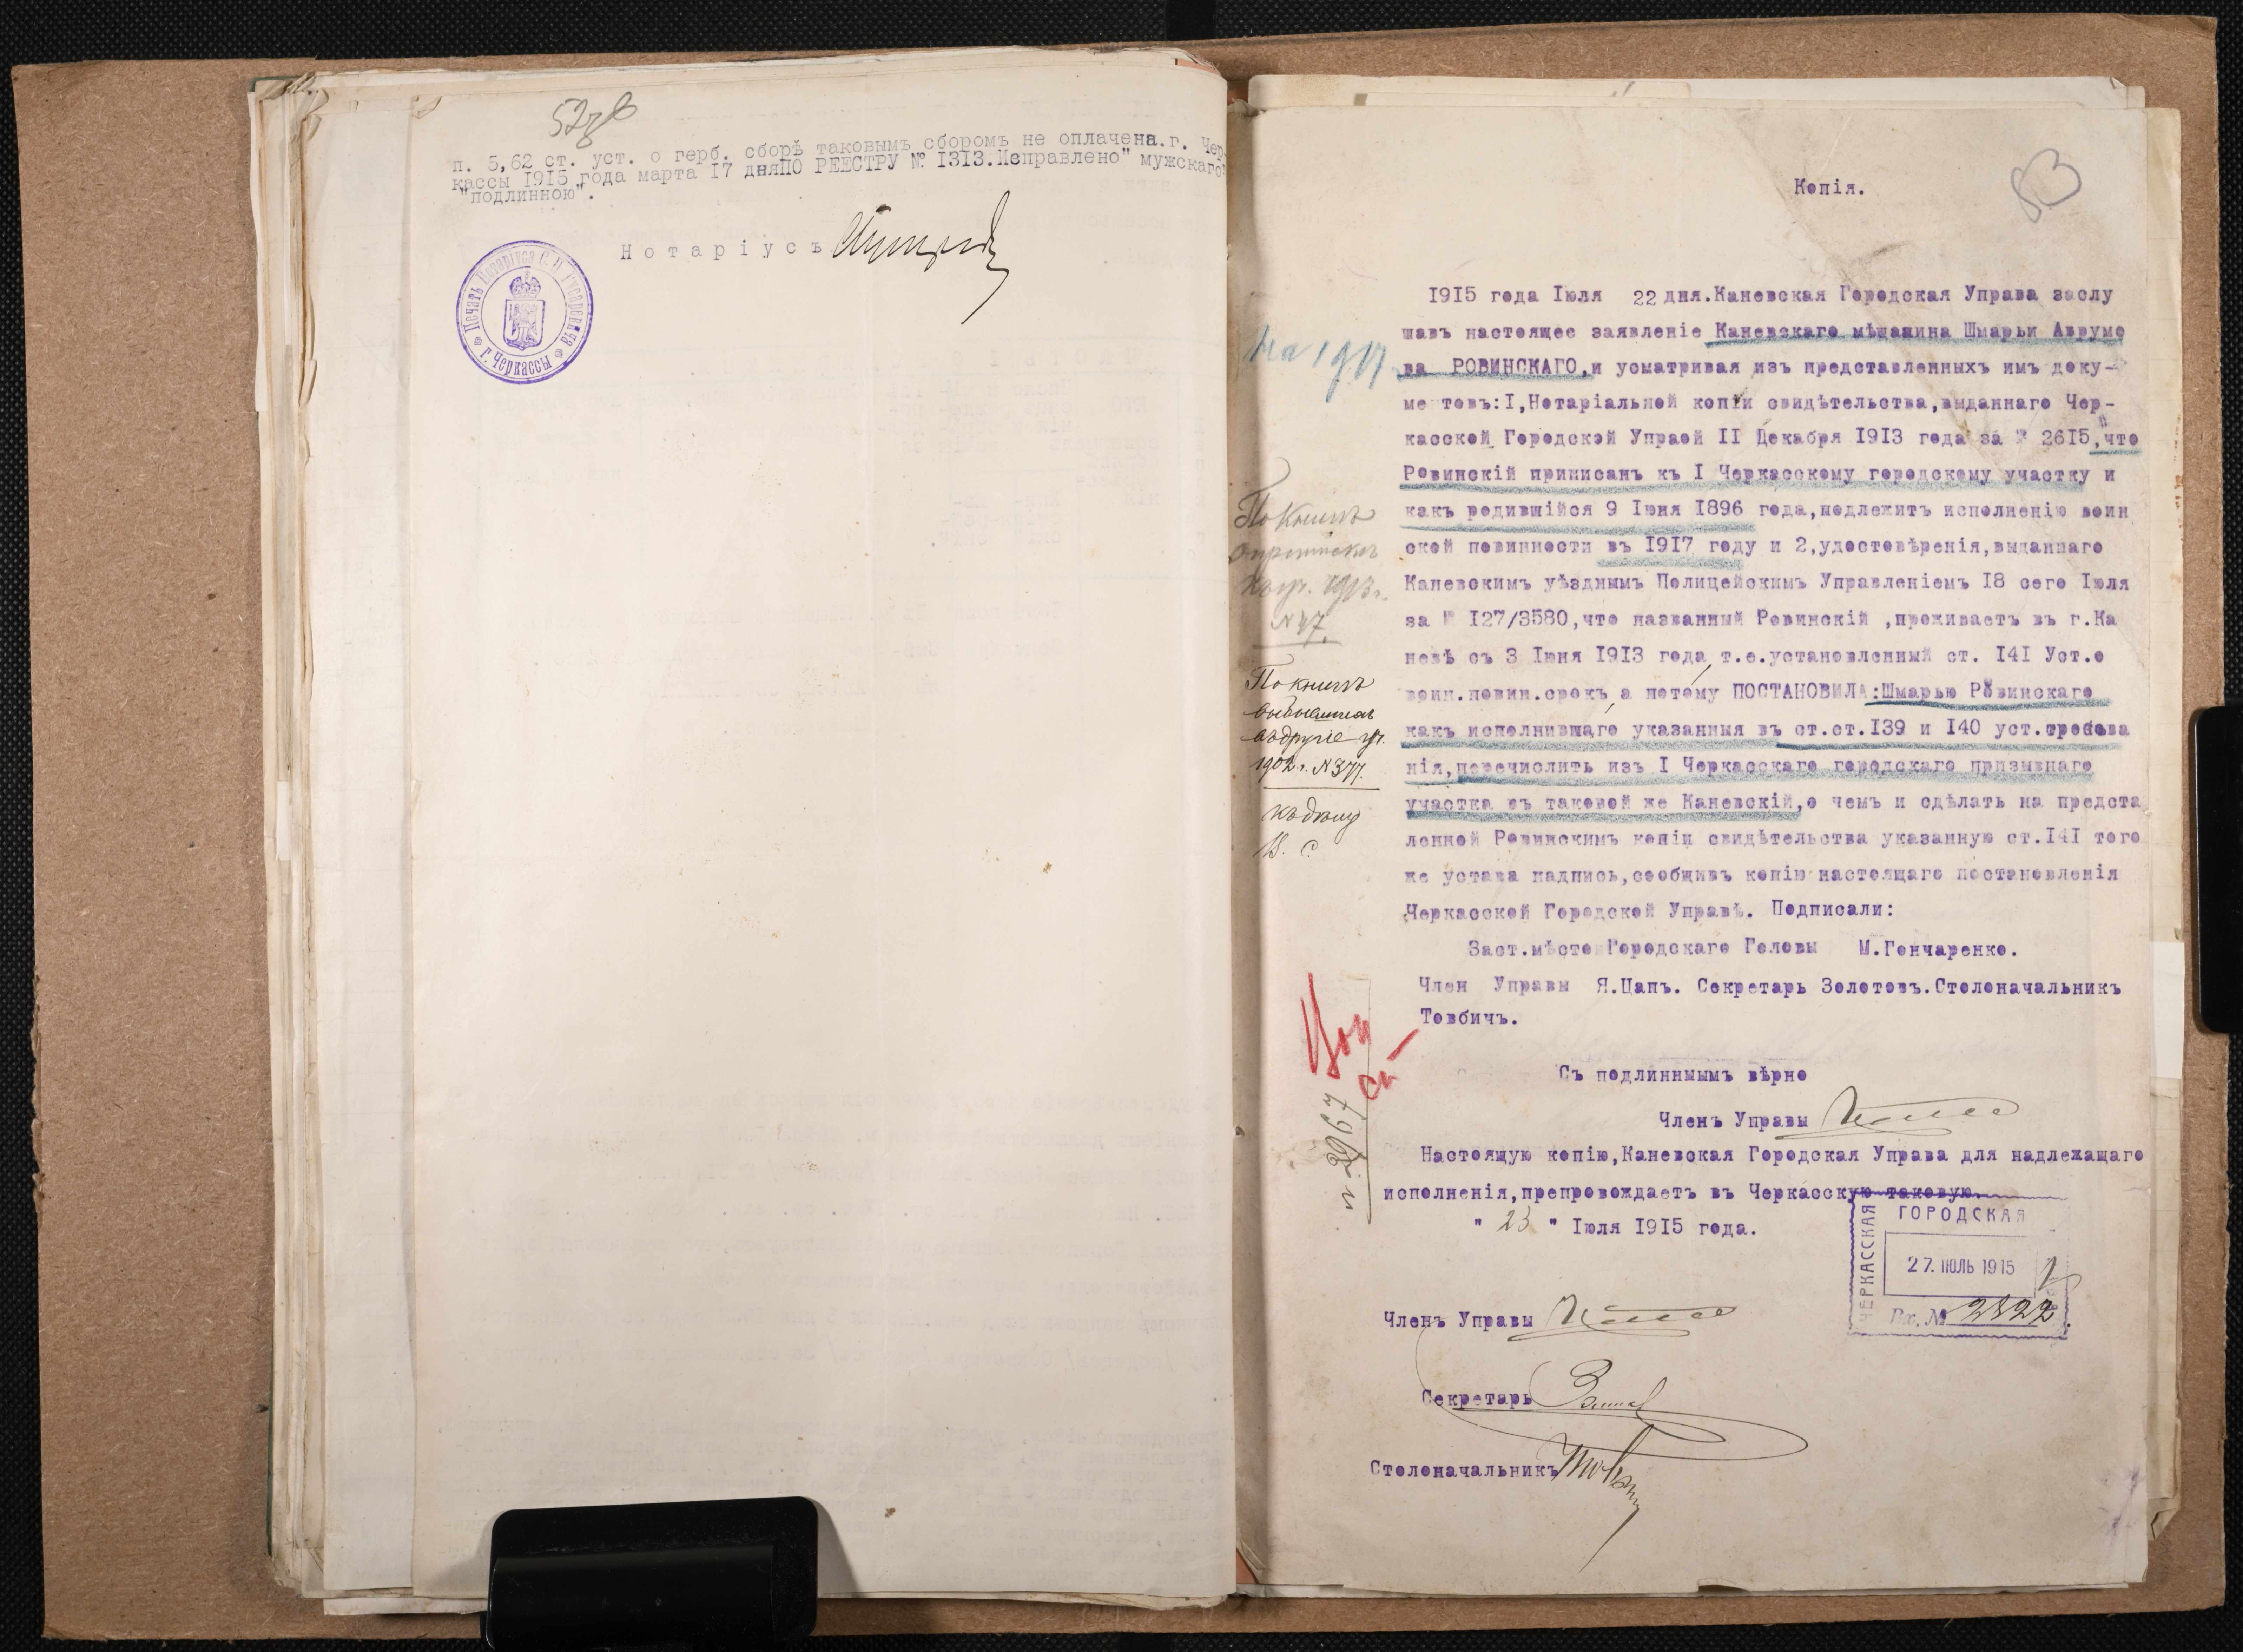 52об
п. 5,62 ст. уст. о герб. сборѣ таковымъ сборомъ не оплачена.г. Чер
кассы 1915 года марта 17 дняПО РЕЕСТРУ № 1313.Исправлено" мужскаго"
"подлинною".
Нотаріусъ
Печать Нотаріуса
г. Черкассы
53
Копія.
1915 года Іюля 22 дня.Каневская Городская Управа заслу
шавъ настоящее заявленіе Каневскаго мѣщанина Шмарьи Аврумо
ва РОВИНСКАГО,и усматривая изъ представленныхъ имъ доку-
ме товъ:I,Нотаріальной копіи свидѣтельства,выданнаго Чер-
касской Городской Упраой II Декабря 1913 года за № 2615,что
Ровинскій приписанъ къ I Черкасскому городскому участку и
какъ родившійся 9 Іюня 1896 года,подлежитъ исполненію воин
ской повинности въ 1917 году и 2,удостовѣренія,выданнаго
Каневскимъ уѣзднымъ Полицейскимъ Управленіемъ 18 сего Іюля
за № 127/3580,что названный Ровинскій ,проживаетъ въ г.Ка
невѣ съ 3 Іюня 1913 года,т.е.установленный ст. 141 Уст.о
воин.повин.срокъ,а потому ПОСТАНОВИЛА:Шмарью Ровинскаго
какъ исполнившаго указанныя въ ст.ст.139 и 140 уст.требова
нія,перечислить изъ I Черкасскаго городскаго призывнаго
участка въ таковой же Каневскій,о чемъ и сдѣлать на предста
ленной Ровинскимъ копіи свидѣтельства указанную ст.141 того
же устава надпись,сообщивъ копію настоящаго постановленія
Черкасской Городской Управѣ. Подписали:
Заст.мѣсто Городскаго Головы М.Гончаренко.
Член Управы Я.Цапъ. Секретарь Золотовъ.Столоначальникъ
Товбичъ.
Съ подлиннымъ вѣрно
Членъ Управы
Настоящую копію,Каневская Городская Управа для надлежащаго
исполненія,препровождаетъ въ Черкасскую таковую.
" 23 " Іюля 1915 года.
Членъ Управы
Секретарь
Столоначальникъ
ЧЕРКАССКАЯ
ГОРОДСКАЯ
27. ІЮЛЬ 1915
Вх. № 2822
На 1917
По книгѣ
приписки
1913 г.
№ 47.
По книгѣ
выбывшихъ
въ другіе уч.
1902 г. № 377.
къ дѣлу
№ 2967